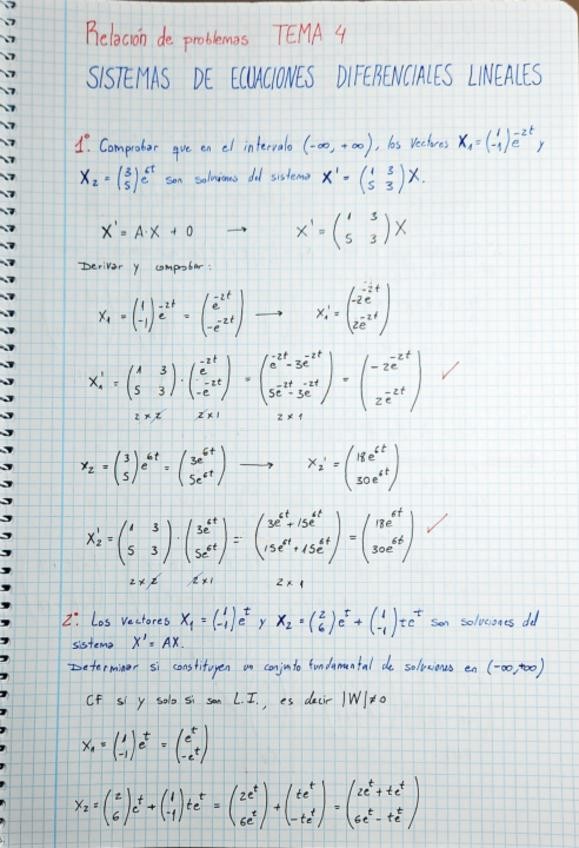 Relación de problemas TEMA 4
SISTEMAS DE ECUACIONES DIFERENCIALES LINEALES
1º Comprobar que en el intervalo (-∞, +∞), los vectores X₁ = (1 / -1) e^-2t y
X₂ = (3 / 5) e^6t son soluciones del sistema X' = (1 3 / 5 3) X.
X' = A·X + 0 → X' = (1 3 / 5 3) X
Derivar y comprobar:
X₁ = (1 / -1) e^-2t = (e^-2t / -e^-2t) → X₁' = (-2e^-2t / 2e^-2t)
X₁' = (1 3 / 5 3) · (e^-2t / -e^-2t) = (e^-2t - 3e^-2t / 5e^-2t - 3e^-2t) = (-2e^-2t / 2e^-2t) ✓
2 x 2 2 x 1 2 x 1
X₂ = (3 / 5) e^6t = (3e^6t / 5e^6t) → X₂' = (18e^6t / 30e^6t)
X₂' = (1 3 / 5 3) · (3e^6t / 5e^6t) = (3e^6t + 15e^6t / 15e^6t + 15e^6t) = (18e^6t / 30e^6t) ✓
2 x 2 2 x 1 2 x 1
2º Los vectores X₁ = (1 / -1) e^t y X₂ = (2 / 6) e^t + (1 / -1) te^t son soluciones del
sistema X' = AX.
Determinar si constituyen un conjunto fundamental de soluciones en (-∞, +∞)
CF si y solo si son L.I., es decir |W| ≠ 0
X₁ = (1 / -1) e^t = (e^t / -e^t)
X₂ = (2 / 6) e^t + (1 / -1) te^t = (2e^t / 6e^t) + (te^t / -te^t) = (2e^t + te^t / 6e^t - te^t)